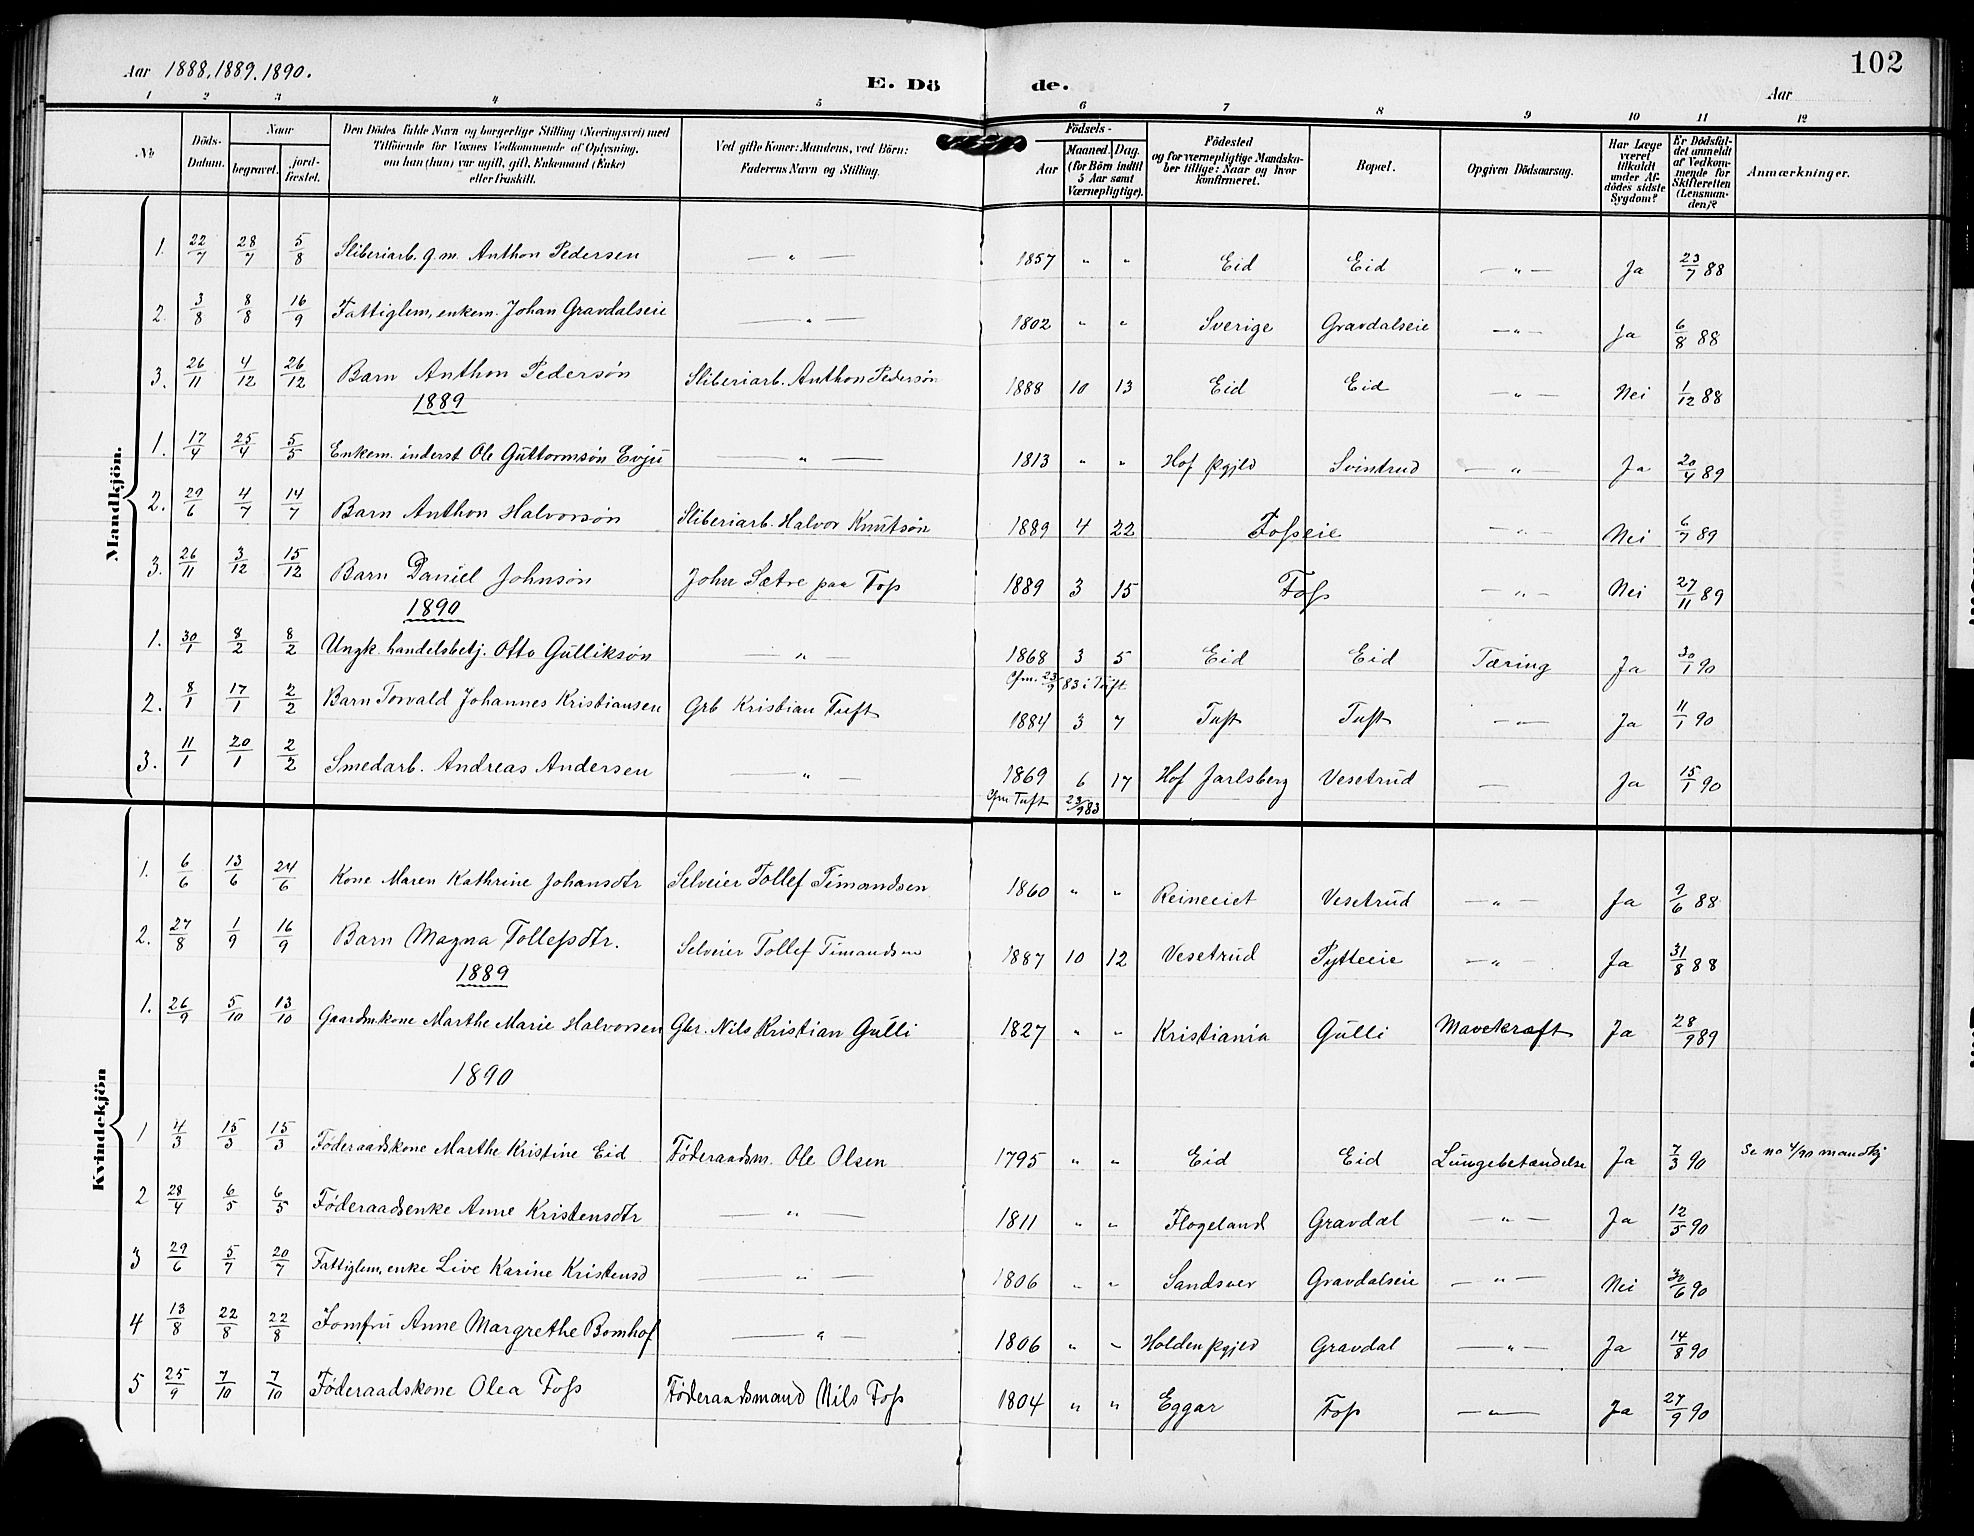 Aar 1888, 1889, 1890. E. Dö de. Aar 102
1 2 3 4 5 6 7 8 9 10 11 12
No. Döds-Datum. Naar begravet. jord-fæstet. Den Dödes fulde Navn og borgerlige Stilling (Næringsvei) med Tilföiende for Voxnes Vedkommende af Oplysning, om han (hun) var ugift, gift, Enkemand (Enke) eller fraskilt. Ved gifte Koner: Mandens, ved Börn: Faderens Navn og Stilling. Födsels- Aar Maaned. Dag. (for Börn indtil 5 Aar samt Værnepligtige). Födested og for værnepligtige Mandskaber tillige: Naar og hvor konfirmeret. Bopæl. Opgiven Dödsaarsag. Har Læge været tilkaldt under Afdödes sidste Sygdom? Er Dödsfaldet anmeldt af Vedkommende for Skifteretten (Lensmanden)? Anmærkninger.
Mandkjön.
1. 22/7 28/7 5/8 Sliberiarb. g.m. Anthon Pedersen — " — 1857 " " Eid Eid — " — Ja 23/7 88
2. 3/8 8/8 16/9 Fattiglem, enkem. Johan Gravdalseie — " — 1802 " " Sverige Gravdalseie — " — Ja 6/8 88
3. 26/11 4/12 26/12 Barn Anthon Pedersøn Sliberiarb. Anthon Pedersøn 1888 10 13 Eid Eid — " — Nei 1/12 88
1889
1. 17/4 25/4 5/5 Enkem. inderst Ole Guttormsøn Evju — " — 1813 " " Hof pgjld Svintrud — " — Ja 20/4 89
2. 29/6 4/7 14/7 Barn Anthon Halvorsøn Sliberiarb. Halvor Knutsøn 1889 4 22 Fosseie — " — Nei 6/7 89
3. 26/11 3/12 15/12 Barn Daniel Johnsøn John Sætre paa Foss 1889 3 15 Foss — " — Nei 27/11 89
1890
1. 30/1 8/2 8/2 Ungk. handelsbetj. Otto Gulliksøn — " — 1868 3 5 Eid Eid Tæring Ja 30/1 90
Cfm. 23/9 83 i Tuft
2. 8/1 17/1 2/2 Barn Torvald Johannes Kristiansen Grb Kristian Tuft 1884 3 7 Tuft Tuft — " — Ja 11/1 90
3. 11/1 20/1 2/2 Smedarb. Andreas Andersen — " — 1869 6 17 Hof Jarlsberg Vesetrud — Ja 15/1 90
Cfm Tuft 23/9 83
Kvindekjön
1. 6/6 13/6 24/6 Kone Maren Kathrine Johansdtr Selveier Tollef Timandsen 1860 " " Reineeiet Vesetrud — " — Ja 9/6 88
2. 27/8 1/9 16/9 Barn Magna Tollefsdtr. Selveier Tollef Timandsen 1887 10 12 Vesetrud Pytteeie — " — Ja 31/8 88
1889
1. 26/9 5/10 13/10 Gaardmkone Marthe Marie Halvorsen Gbr. Nils Kristian Gulli 1827 " " Kristiania Gulli Mavekræft Ja 28/9 89
1890
1 4/3 15/3 15/3 Føderaadskone Marthe Kristine Eid Føderaadsm. Ole Olsen 1795 " " Eid Eid Lungebetændelse Ja 7/3 90 Se no 4/90 mandkj
2 28/4 6/5 6/5 Føderaadsenke Anne Kristensdtr — " — 1811 " " Flogeland Gravdal — " — Ja 12/5 90
3 29/6 5/7 20/7 Fattiglem, enke Live Karine Kristensd — " — 1806 " " Sandsver Gravdalseie — " — Nei 30/6 90
4 13/8 22/8 22/8 Jomfru Anne Margrethe Bomhof — " — 1806 " " Holden pgjeld Gravdal — " — Ja 14/8 90
5 25/9 7/10 7/10 Føderaadskone Olea Foss Føderaadsmand Nils Foss 1804 " " Eggar Foss — " — Ja 27/9 90